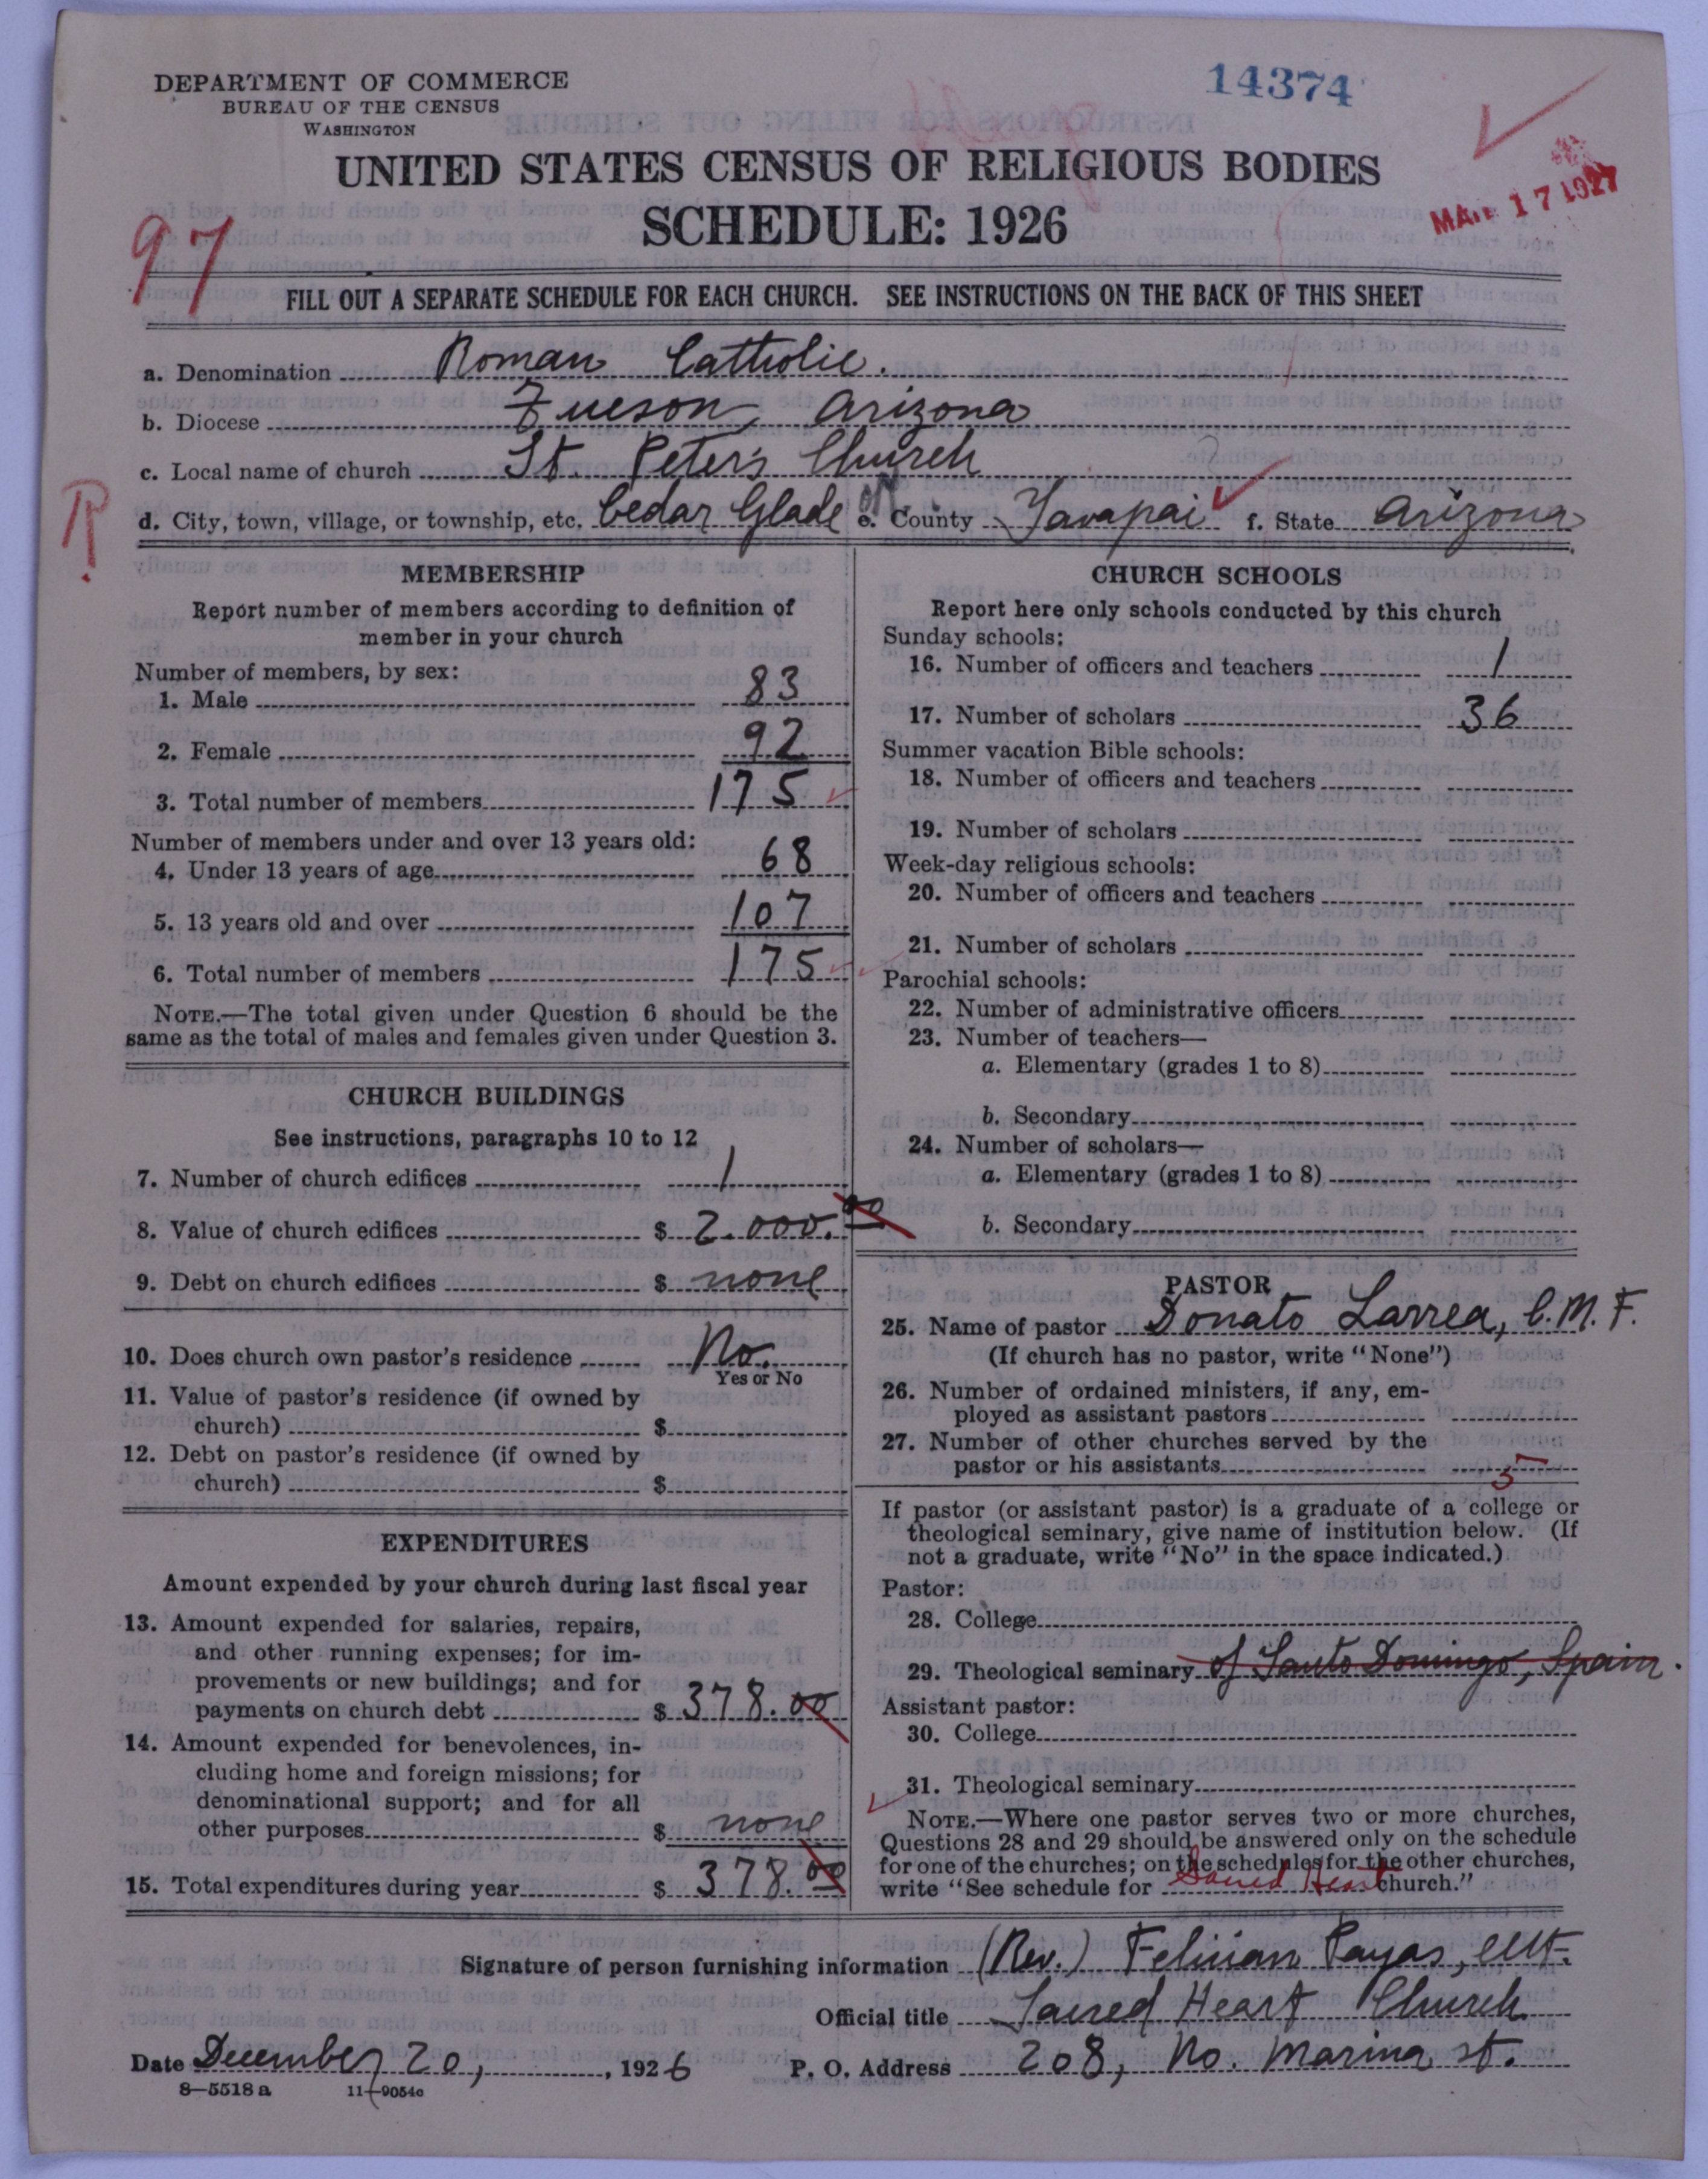 DEPARTMENT OF COMMERCE
BUREAU OF THE CENSUS
WASHINGTON
14374
UNITED STATES CENSUS OF RELIGIOUS BODIES
SCHEDULE: 1926
MAR 17 1927
97
FILL OUT A SEPARATE SCHEDULE FOR EACH CHURCH. SEE INSTRUCTIONS ON THE BACK OF THIS SHEET
a. Denomination Roman Catholic.
b. Diocese Tucson, Arizona
c. Local name of church St. Peter's Church
R. d. City, town, village, or township, etc. Cedar Glade e. County Yavapai f. State Arizona
MEMBERSHIP
Report number of members according to definition of
member in your church
Number of members, by sex:
1. Male 83
2. Female 92
3. Total number of members 175
Number of members under and over 13 years old:
4. Under 13 years of age 68
5. 13 years old and over 107
6. Total number of members 175
NOTE.—The total given under Question 6 should be the
same as the total of males and females given under Question 3.
CHURCH BUILDINGS
See instructions, paragraphs 10 to 12
7. Number of church edifices 1
8. Value of church edifices $ 2.000.00
9. Debt on church edifices $ none
10. Does church own pastor's residence No.
Yes or No
11. Value of pastor's residence (if owned by
church) $
12. Debt on pastor's residence (if owned by
church) $
EXPENDITURES
Amount expended by your church during last fiscal year
13. Amount expended for salaries, repairs,
and other running expenses; for im-
provements or new buildings; and for
payments on church debt $ 378.00
14. Amount expended for benevolences, in-
cluding home and foreign missions; for
denominational support; and for all
other purposes $ none
15. Total expenditures during year $ 378.00
CHURCH SCHOOLS
Report here only schools conducted by this church
Sunday schools:
16. Number of officers and teachers 1
17. Number of scholars 36
Summer vacation Bible schools:
18. Number of officers and teachers
19. Number of scholars
Week-day religious schools:
20. Number of officers and teachers
21. Number of scholars
Parochial schools:
22. Number of administrative officers
23. Number of teachers—
a. Elementary (grades 1 to 8)
b. Secondary
24. Number of scholars—
a. Elementary (grades 1 to 8)
b. Secondary
PASTOR
25. Name of pastor Donato Larrea, C.M.F.
(If church has no pastor, write "None")
26. Number of ordained ministers, if any, em-
ployed as assistant pastors
27. Number of other churches served by the
pastor or his assistants 5
If pastor (or assistant pastor) is a graduate of a college or
theological seminary, give name of institution below. (If
not a graduate, write "No" in the space indicated.)
Pastor:
28. College
29. Theological seminary of Santo Domingo, Spain.
Assistant pastor:
30. College
31. Theological seminary
NOTE.—Where one pastor serves two or more churches,
Questions 28 and 29 should be answered only on the schedule
for one of the churches; on the schedules for the other churches,
write "See schedule for Sacred Heart church."
Signature of person furnishing information (Rev.) Felician Payas, CMF.
Official title Sacred Heart Church
Date December 20, 1926 P. O. Address 208, No. Marina St.
8—5518 a 11—9054c